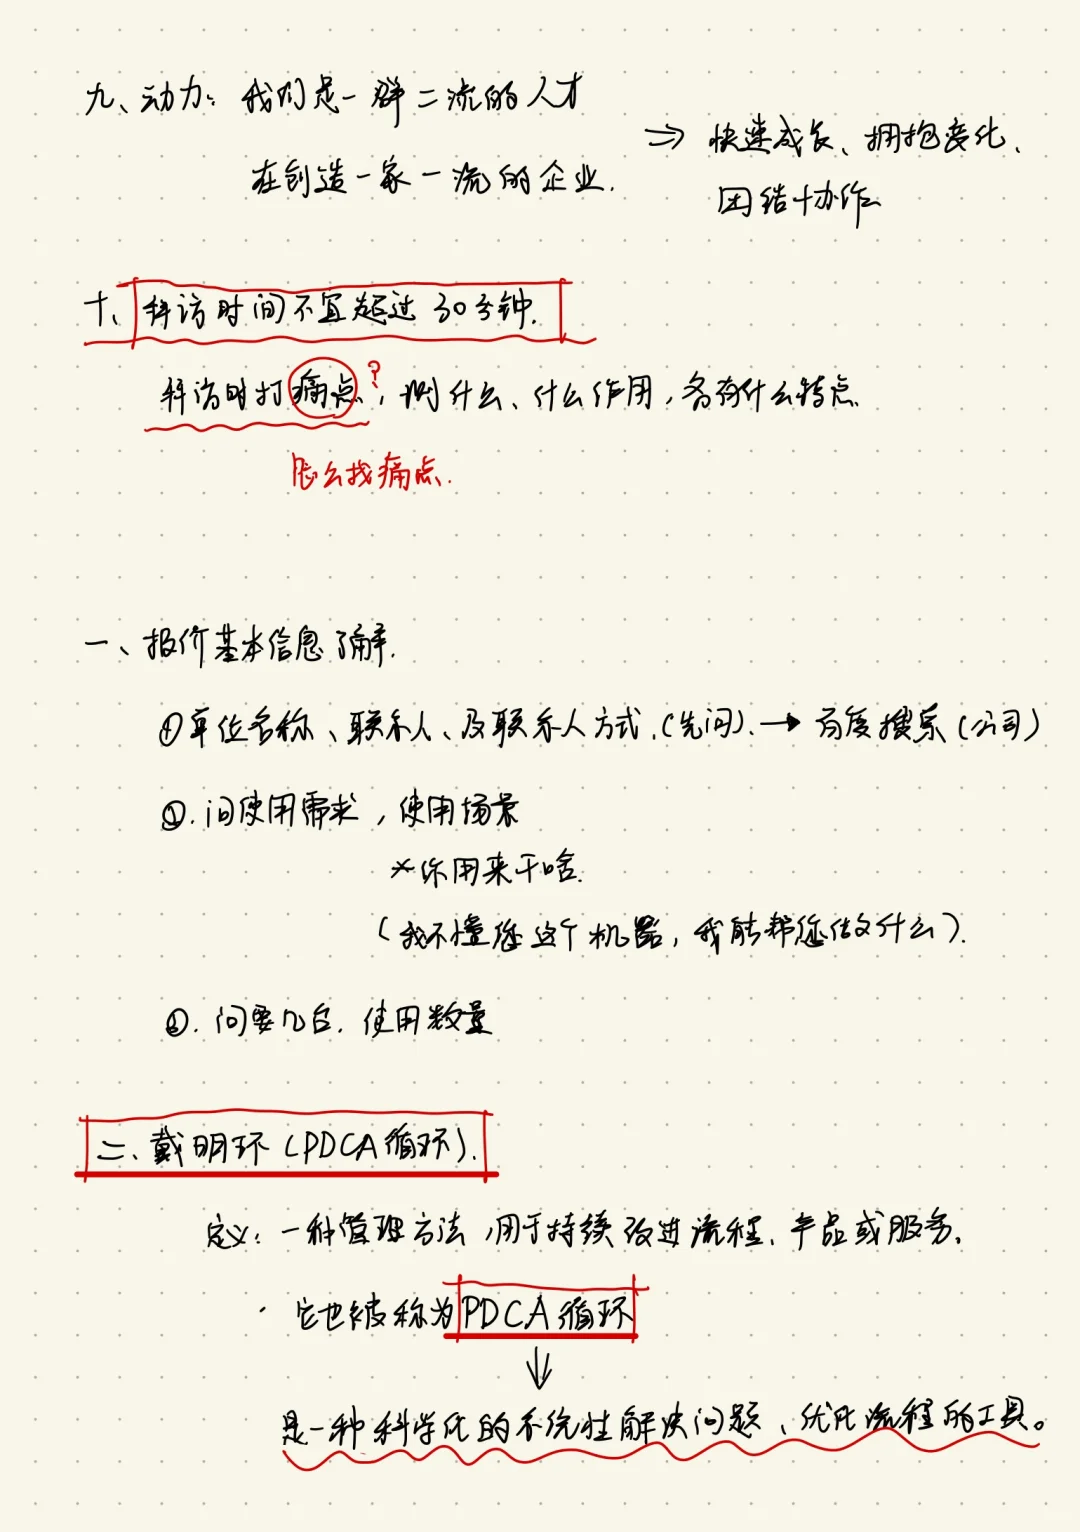 九、动力：我们是一群二流的人才
在创造一家一流的企业.
⇒ 快速成长、拥抱变化、
团结协作
十、拜访时间不宜超过30分钟.
拜访时打痛点?，测什么、什么作用，各有什么特点
怎么找痛点.
一、报价基本信息了解.
①单位名称、联系人、及联系人方式.(先问). → 百度搜索(公司)
②.问使用需求，使用场景
*你用来干啥.
(我不懂您这个机器，我能帮您做什么).
③.问要几台.使用数量
二、戴明环(PDCA循环).
定义：一种管理方法，用于持续改进流程、产品或服务.
· 它也被称为PDCA循环
↓
是一种科学化的系统性解决问题、优化流程的工具。